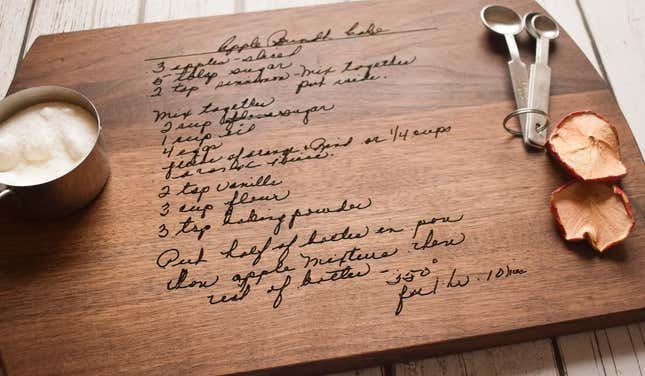 Apple Bundt Cake
3 apples - sliced
5 tblsp sugar
2 tsp cinnamon - Mix together
put aside.
Mix together
2 cup sugar
1 cup oil
4 eggs
of orange Rind or 1/4 cups
orange juice.
2 tsp vanilla
3 cup flour
3 tsp baking powder
Put half of batter in pan
then apple mixture then
rest of batter - 350°
for 1 hr. 10